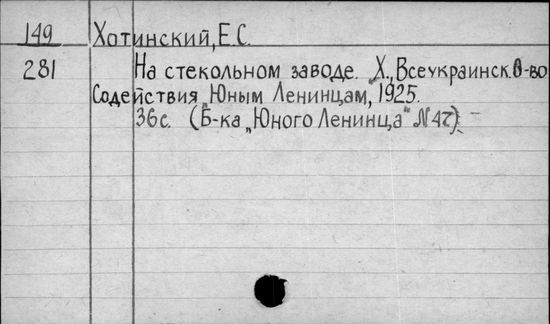 149 Хотинский, Е.С.
281 На стекольном заводе. Х., Всеукраинск. О-во
Содействия „Юным Ленинцам, 1925.
36с. (Б-ка „Юного Ленинца" N 42).